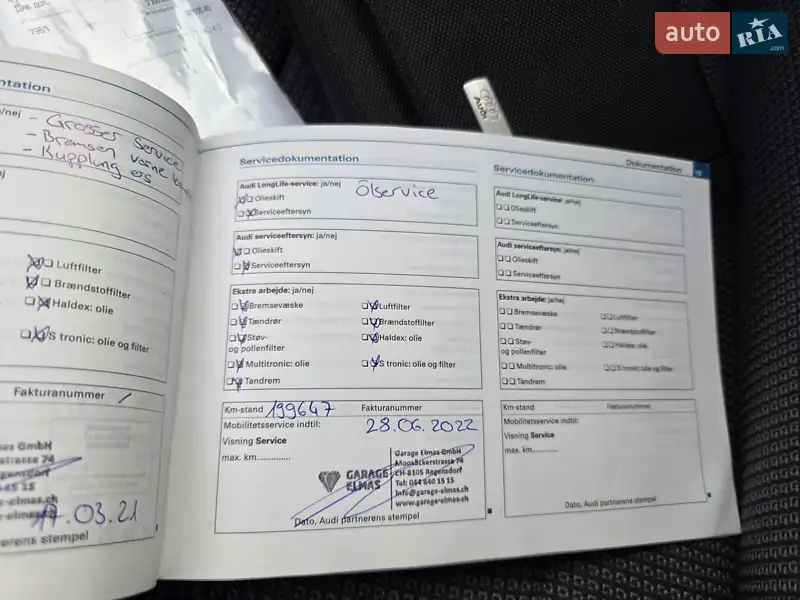 auto RIA .com
Audi
ntation
- Grosser Service
- Bremsen vorne
- Kupplung ers
Luftfilter
Brændstoffilter
Haldex: olie
S tronic: olie og filter
Fakturanummer
Elmas GmbH
strasse 74
Regensdorf
17.03.21
nerens stempel
Servicedokumentation
Audi LongLife-service: ja/nej
Ölservice
Olieskift
Serviceeftersyn
Audi serviceeftersyn: ja/nej
Olieskift
Serviceeftersyn
Ekstra arbejde: ja/nej
Bremsevæske Luftfilter
Tændrør Brændstoffilter
Støv- Haldex: olie
og pollenfilter
Multitronic: olie S tronic: olie og filter
Tandrem
Km-stand 199647 Fakturanummer
Mobilitetsservice indtil: 28.06.2022
Visning Service
max. km..............
GARAGE ELMAS
Garage Elmas GmbH
Moosäckerstrasse 74
CH-8105 Regensdorf
Tel: 044 840 15 15
info@garage-elmas.ch
www.garage-elmas.ch
Dato, Audi partnerens stempel
Dokumentation
Servicedokumentation
Audi LongLife-service: ja/nej
Olieskift
Serviceeftersyn
Audi serviceeftersyn: ja/nej
Olieskift
Serviceeftersyn
Ekstra arbejde: ja/nej
Bremsevæske Luftfilter
Tændrør Brændstoffilter
Støv- Haldex: olie
og pollenfilter
Multitronic: olie S tronic: olie og filter
Tandrem
Km-stand Fakturanummer
Mobilitetsservice indtil:
Visning Service
max. km..............
Dato, Audi partnerens stempel